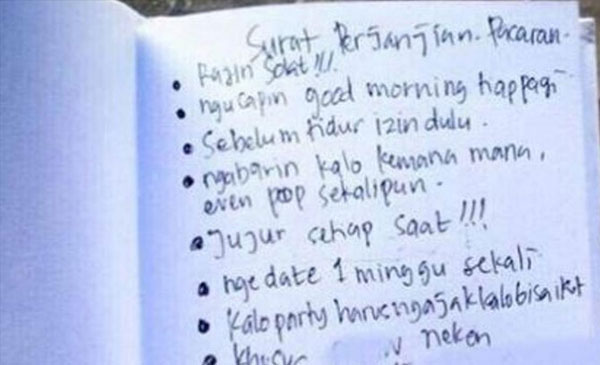 Surat Perjanjian Pacaran.
• Rajin Solat !!!
• ngucapin good morning happagi
• Sebelum tidur izin dulu.
• ngabarin kalo kemana mana,
even poop sekalipun.
• Jujur setiap saat !!!
• nge date 1 minggu sekali
• Kalo party harus ngajak kalo bisa ikut
• khusus nekon